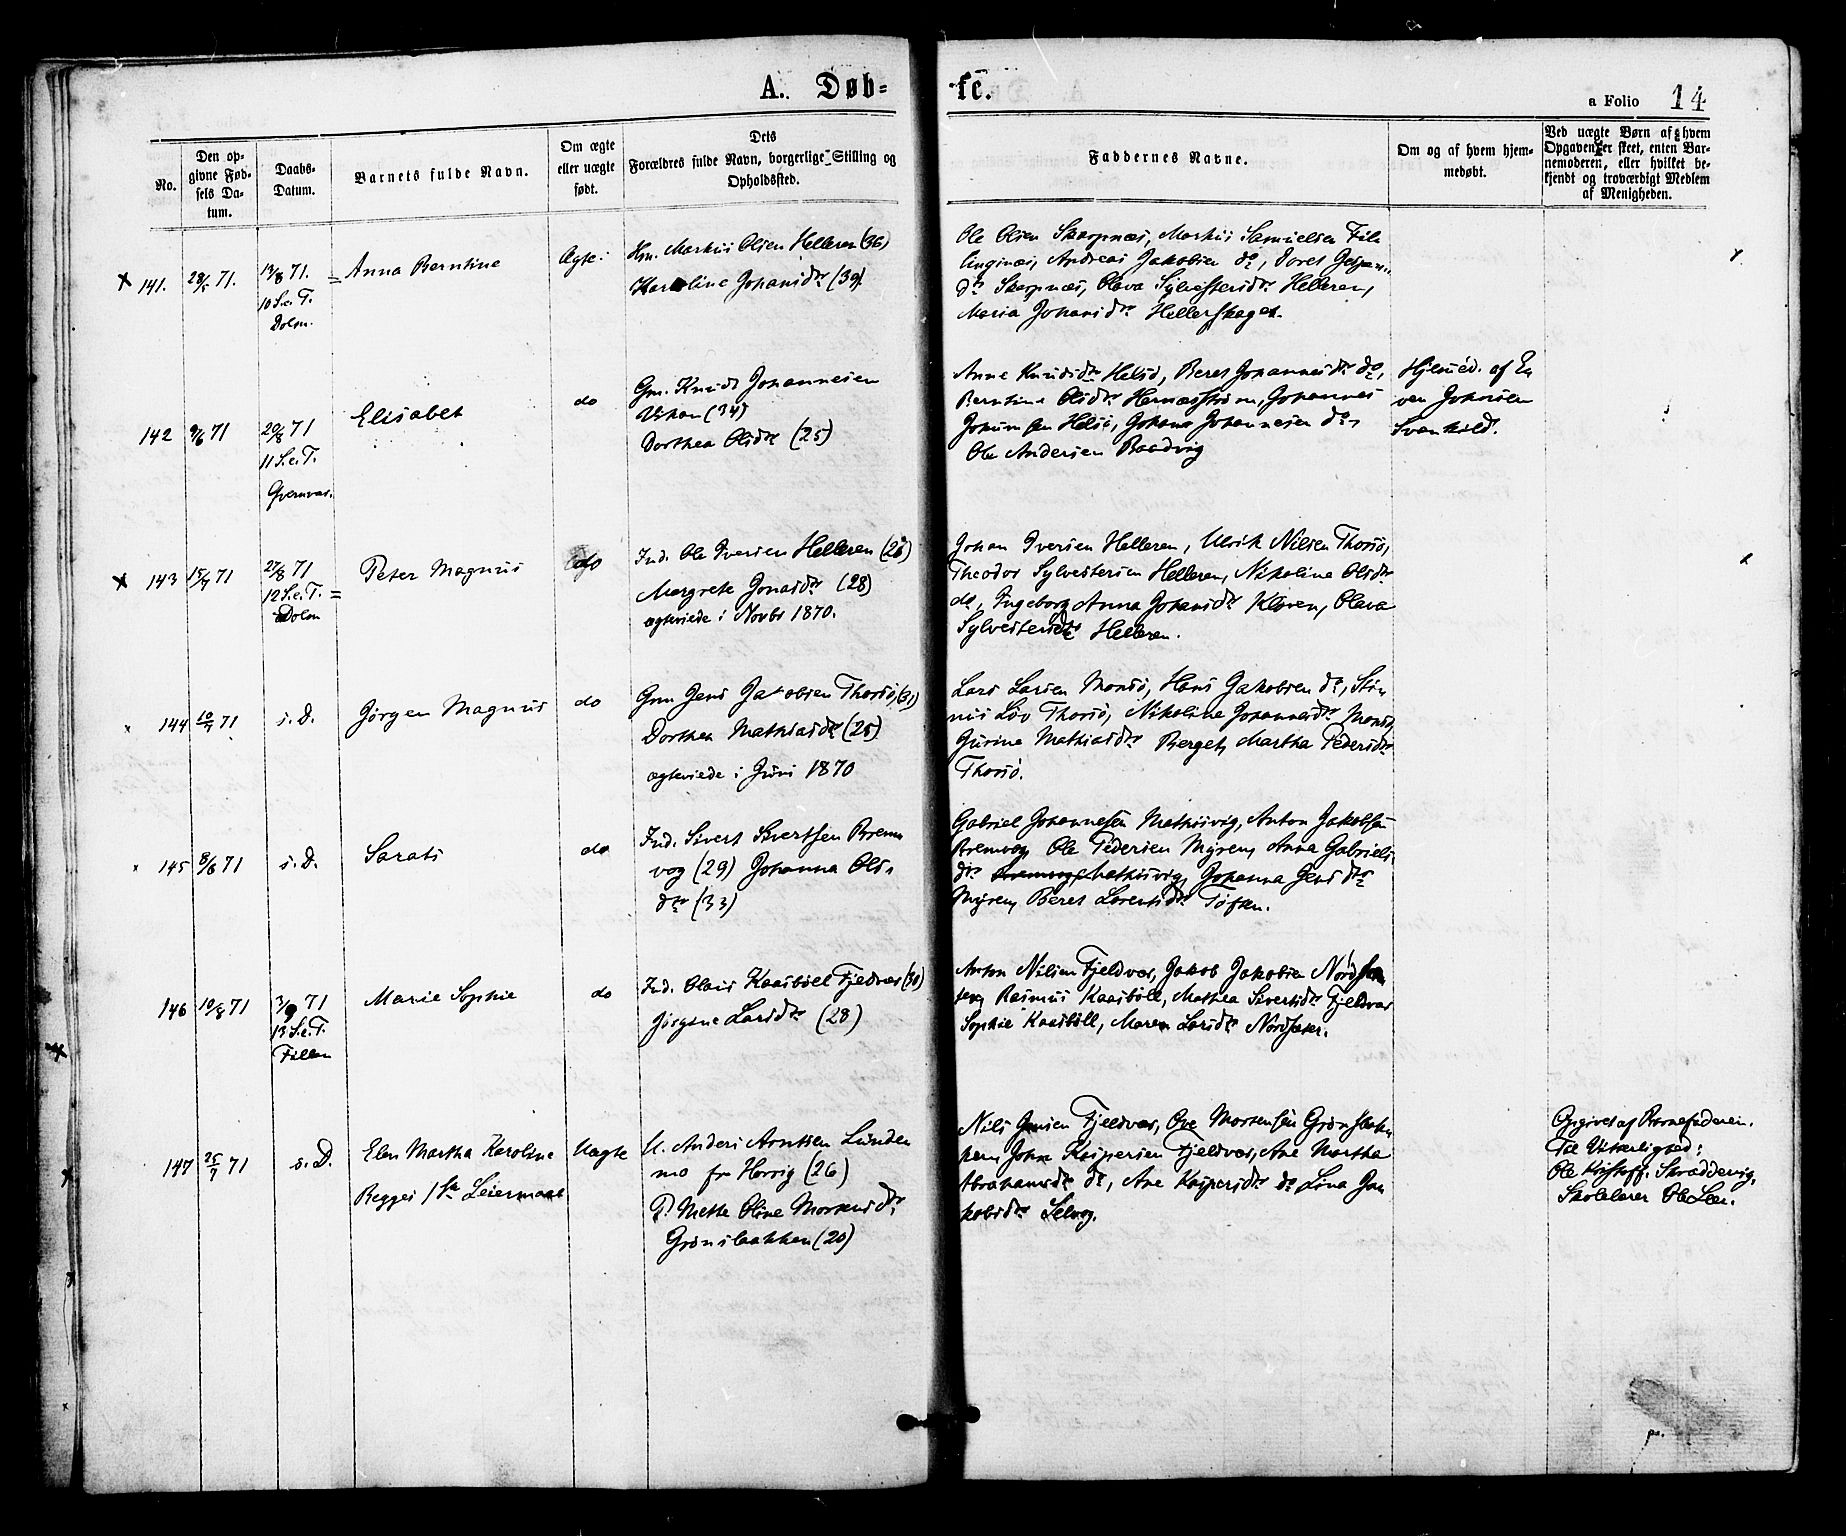 A. Døb=
te.
a Folio 14
No.
Den op-
givne Fød-
sels Da-
tum.
Daabs-
Datum.
Barnets fulde Navn.
Om ægte
eller uægte
født.
Dets
Forældres fulde Navn, borgerlige Stilling og
Opholdssted.
Faddernes Navne.
Om og af hvem hjem-
medøbt.
Ved uægte Børn af hvem
Opgaven er skeet, enten Bar-
nemoderen, eller hvilket be-
kjendt og troværdigt Medlem
af Menigheden.
x 141. 28/5 71.
13/8 71.
10 S.e.T.
Dolm.
Anna Berntine
Ægte.
Hm. Markus Olsen Helleren (36)
Karoline Johansdr (39)
Ole Olsen Skarpnæs, Markus Samuelsen Fil-
lingnæs, Andreas Jakobsen do, Doret
dr Skarpnæs, Olava Sylvestersdr Helleren,
Maria Johansdr Hellerskaget.
142 9/6 71
20/8 71
11 S.e.T.
Qvernvar.
Elisabet
do
Gm. Knud Johannesen
(34)
Dorthea Olsdr (25)
Anne Knudsdr Helsø, Beret Johannesdr do,
Berntine Olsdr Hernæsstrøm, Johannes
Helsø, Johan Johannesen do,
Ole Andersen Baadvig
Hjemmed. af E
ven Johnsen
Svankild.
x 143 15/7 71
27/8 71
12 S.e.T. =
Dolm
Peter Magnus
do
Ind. Ole Iversen Helleren (26)
Margrete Jonasdr (28)
ægteviede i Novbr 1870.
Johan Iversen Helleren, Ulrik Nilsen Thorsø,
Theodor Sylvestersen Helleren, Nikoline Olsdr
do, Ingeborg Anna Johansdr Kløven, Olava
Sylvestersdr Helleren.
144 10/7 71
s. D.
Jørgen Magnus
do
Gm Jens Jakobsen Thorsø, (31)
Dorthea Mathiasdr (25)
ægteviede i Juni 1870
Lars Larsen Monsø, Hans Jakobsen do, Stin-
nus Løv Thorsø, Nikoline Johannesdr Monsø
Gurine Mathiasdr Berget, Martha Pedersdr
Thorsø.
145 8/6 71
s. D.
Sarats
do
Ind. Sivert Sivertsen Brem
vog (29) Johanna Ols-
dr (33)
Gabriel Johannesen Mathisvig, Anton Jakobsen
Bremvog, Ole Pedersen Myren, Anna Gabriels-
dr Mathisvig, Johanna Jensdr
Myren, Beret Lorentsdr Toften.
146 19/8 71
3/9 71
13 S.e.T.
Fillan
Marie Sophie
do
Ind. Olaus Kaasbøll Fjeldvær (30)
Jørgine Larsdr (28)
Anton Nilsen Fjeldvær, Jakob Jakobsen
Rasmus Kaasbøll, Mathea Sivertsdr Fjeldvær
Sophie Kaasbøll, Maren Larsdr Nordsæter.
147 25/7 71
s. D.
Elen Martha Karoline
Begges 1ste Leiermaal
Uægte
U. Anders Arntsen Lunden
mo fr Horrig (26)
P. Mette Oline Mortensdr
Grønslaakken (20)
Nils Jensen Fjeldvær, Ove Mortensen Grønslaak-
ken, John Kaspersen Fjeldvær, Ane Martha
Abrahamsdr do, Ane Kaspersdr do Lina Ja-
kobsdr Selvog.
Opgivet af Barnefaderen.
Til Vitterlighed:
Ole Kirkhoff, Skraddervig,
Skolelærer Ole Leer.